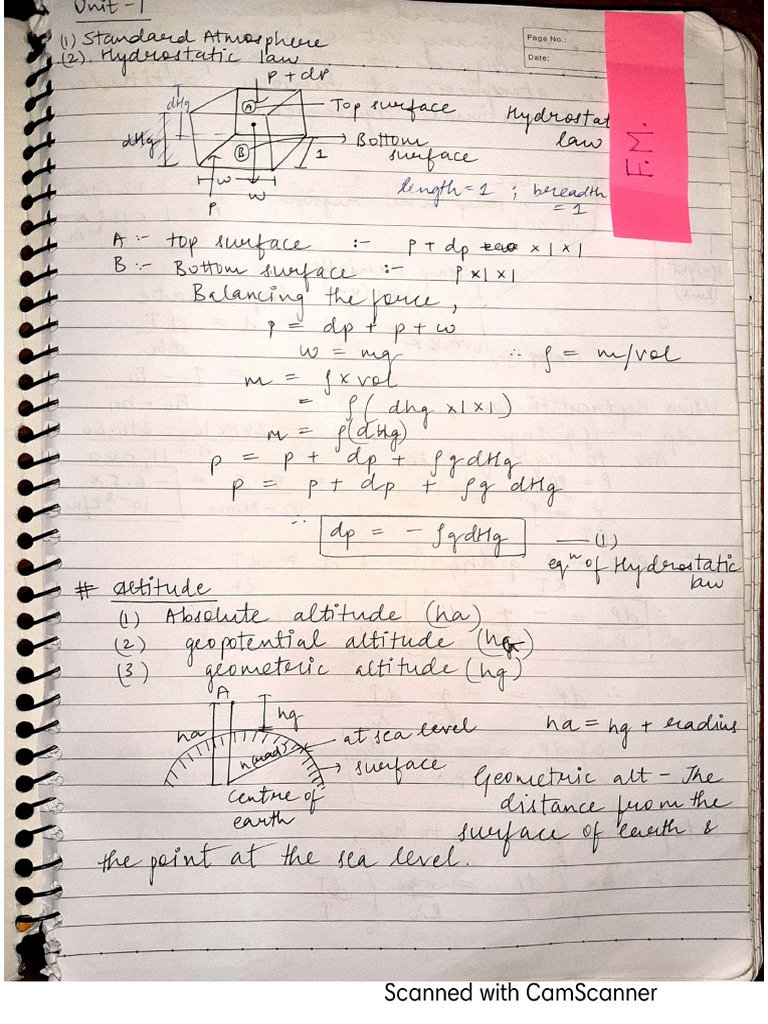 Unit - 1
(1) Standard Atmosphere
(2). Hydrostatic law
Page No.:
Date:
F.M.
p + dp
dHg
dHg
A
Top surface
Hydrostat
law
B
Bottom
surface
1
w
w
p
length = 1 ; breadth
= 1
A :- top surface :- p + dp × 1 × 1
B :- Bottom surface :- p × 1 × 1
Balancing the force,
p = dp + p + w
w = mg ∴ ρ = m/vol
m = ρ × vol
= ρ( dhg × 1 × 1)
m = ρ(dHg)
p = p + dp + ρg dHg
p = p + dp + ρg dHg
∴ dp = - ρg dHg — (1)
eqⁿ of Hydrostatic
law
# Altitude
(1) Absolute altitude (ha)
(2) geopotential altitude (hG)
(3) geometric altitude (hg)
A
ha
hg
at sea level
ha = hg + radius
r(rad)
surface
centre of
earth
Geometric alt - The
distance from the
surface of earth &
the point at the sea level.
Scanned with CamScanner